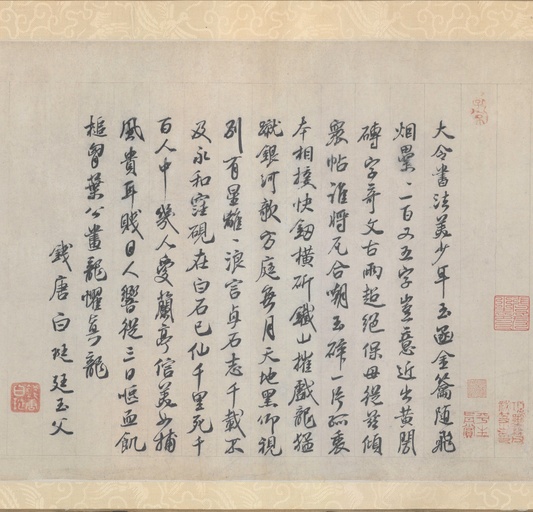 大令書法美少年玉函金籥随飛
烟纍〻一百又五字豈意近出黄閍
磚字奇文古兩超絕保母從茲傾
裏帖誰將瓦合嘲玉碎一片孤裏
本相接快劒橫斫鐵山摧戲龍猛
蹴銀河歌方庭無月天地黑仰視
列百星離〻浪言貞石志千載不
及永和窪硯在白石已仙千里死千
百人中幾人愛蘭亭信美如捕
風貴耳賤目人響從三日恆血飢
槌胷葉公畫龍懼真龍
錢唐白珽廷玉父